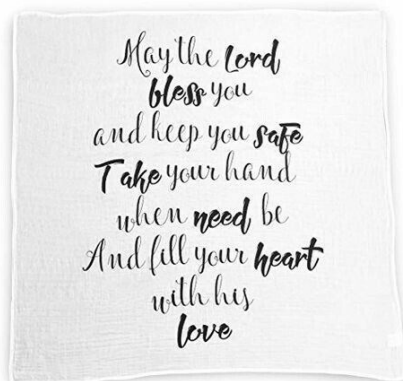 May the Lord
bless you
and keep you safe
Take your hand
when need be
And fill your heart
with his
love